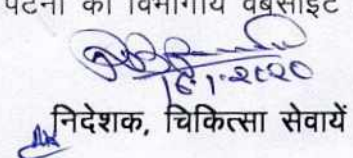 पटना की विभागीय वेबसाइट
16.1.2020
निदेशक, चिकित्सा सेवायें